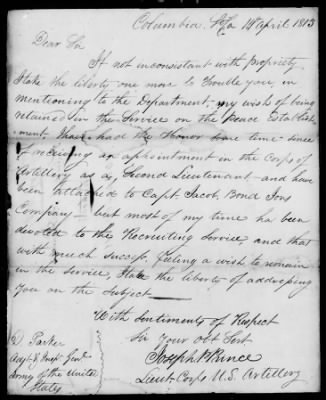 Columbia, 14th April 1815
Dear Sir
If not inconsistent with Propriety,
I take the liberty one more to trouble you, in
mentioning to the Department, my wish of being
retained in the Service on the Peace Establish-
ment. I have had the Honor some time since
of receiving an appointment in the Corps of
Artillery as a Second Lieutenant and have
been attached to Capt. Jacob Bond Ions
Company but most of my time has been
devoted to the Recruiting Service, and that
with much success. Feeling a wish to remain
in the Service, I take the liberty of addressing
You on the Subject
With Sentiments of Respect
Sir Your Obt Servt
Joseph W Prince
Lieut. Corps U.S. Artillery
D Parker
Adjt & Inspr Genl
Army of the United
States